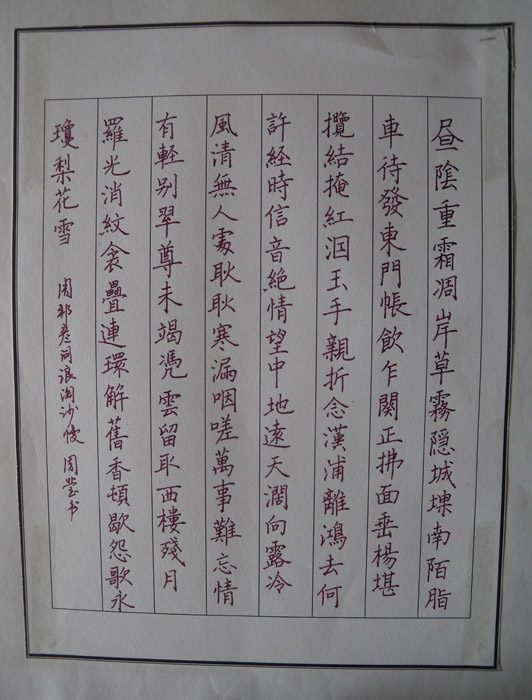 昼陰重霜凋岸草霧隠城堞南陌脂
車待發東門帳飲乍闋正拂面垂楊堪
攬結掩紅泪玉手親折念漢浦離鴻去何
許経時信音絶情望中地遠天濶向露冷
風清無人處耿耿寒漏咽嗟萬事難忘情
有軽别翠尊未竭凴雲留取西樓殘月
羅光消紋衾疊連環解舊香頓歇怨歌永
瓊梨花雪
周邦彦词浪淘沙慢 周莹书